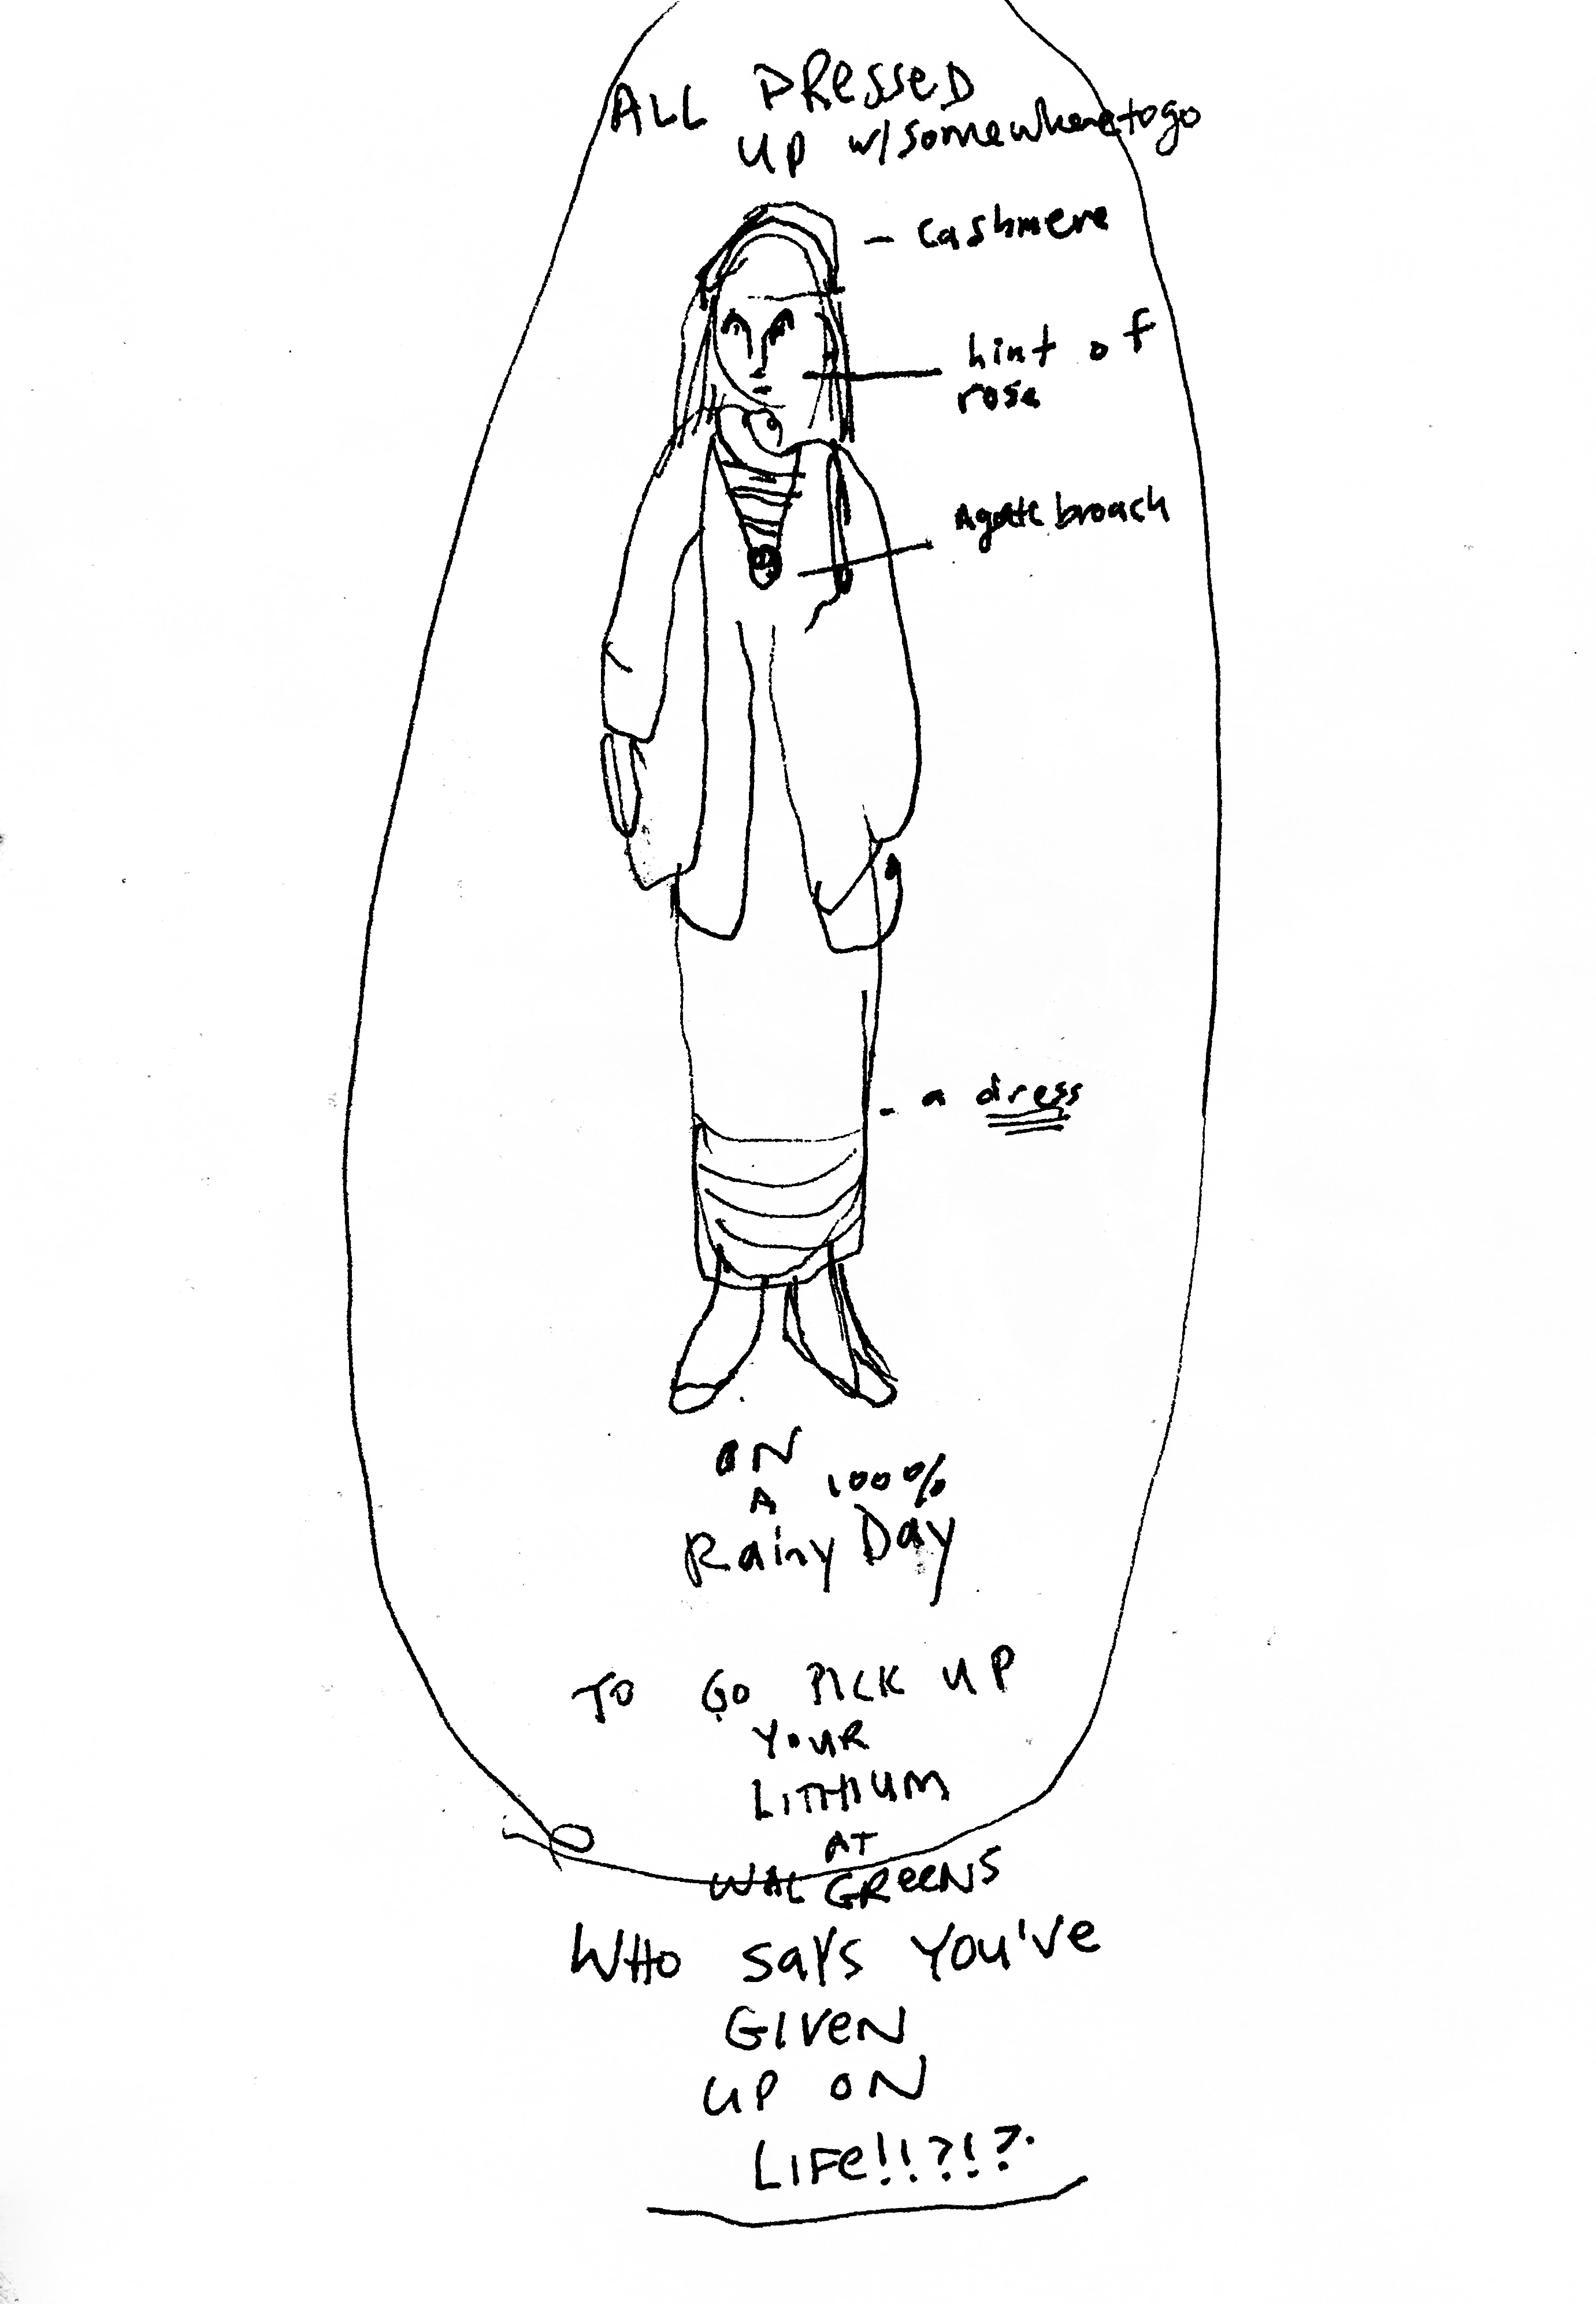 ALL DRESSED
UP w/somewhere to go
- cashmere
hint of
rose
Agate broach
- a dress
ON
A 100%
Rainy Day
TO GO PICK UP
YOUR
LITHIUM
AT
WALGREENS
WHO SAYS YOU'VE
GIVEN
UP ON
LIFE!!?!?